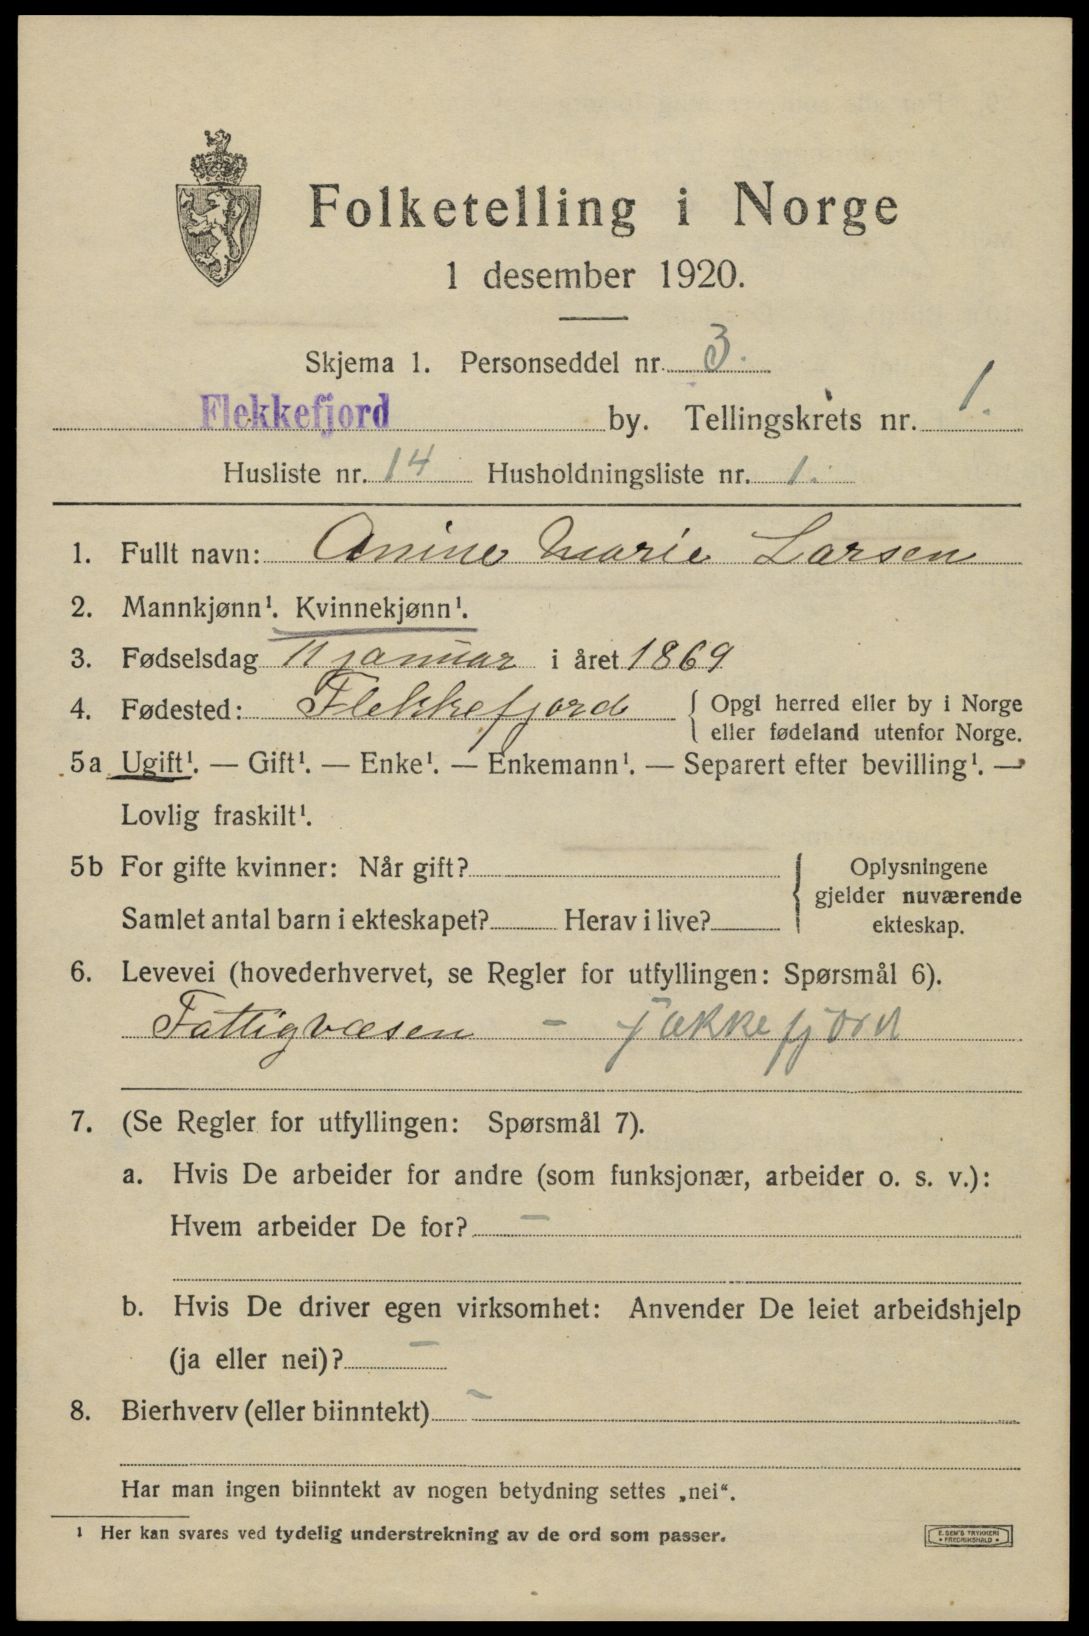 Folketelling i Norge
1 desember 1920.
Skjema 1. Personseddel nr. 3.
Flekkefjord by. Tellingskrets nr. 1.
Husliste nr. 14 Husholdningsliste nr. 1.
1. Fullt navn: Anine Marie Larsen
2. Mannkjønn¹. Kvinnekjønn¹.
3. Fødselsdag 11 januar i året 1869
4. Fødested: Flekkefjord { Opgi herred eller by i Norge
eller fødeland utenfor Norge.
5a Ugift¹. — Gift¹. — Enke¹. — Enkemann¹. — Separert efter bevilling¹. —
Lovlig fraskilt¹.
5b For gifte kvinner: Når gift? { Oplysningene
gjelder nuværende
Samlet antal barn i ekteskapet? Herav i live? ekteskap.
6. Levevei (hovederhvervet, se Regler for utfyllingen: Spørsmål 6).
Fattigvæsen –
7. (Se Regler for utfyllingen: Spørsmål 7).
a. Hvis De arbeider for andre (som funksjonær, arbeider o. s. v.):
Hvem arbeider De for? –
b. Hvis De driver egen virksomhet: Anvender De leiet arbeidshjelp
(ja eller nei)? –
8. Bierhverv (eller biinntekt) –
Har man ingen biinntekt av nogen betydning settes „nei“.
1 Her kan svares ved tydelig understrekning av de ord som passer.
E. SEM'S TRYKKERI
• FREDRIKSHALD •